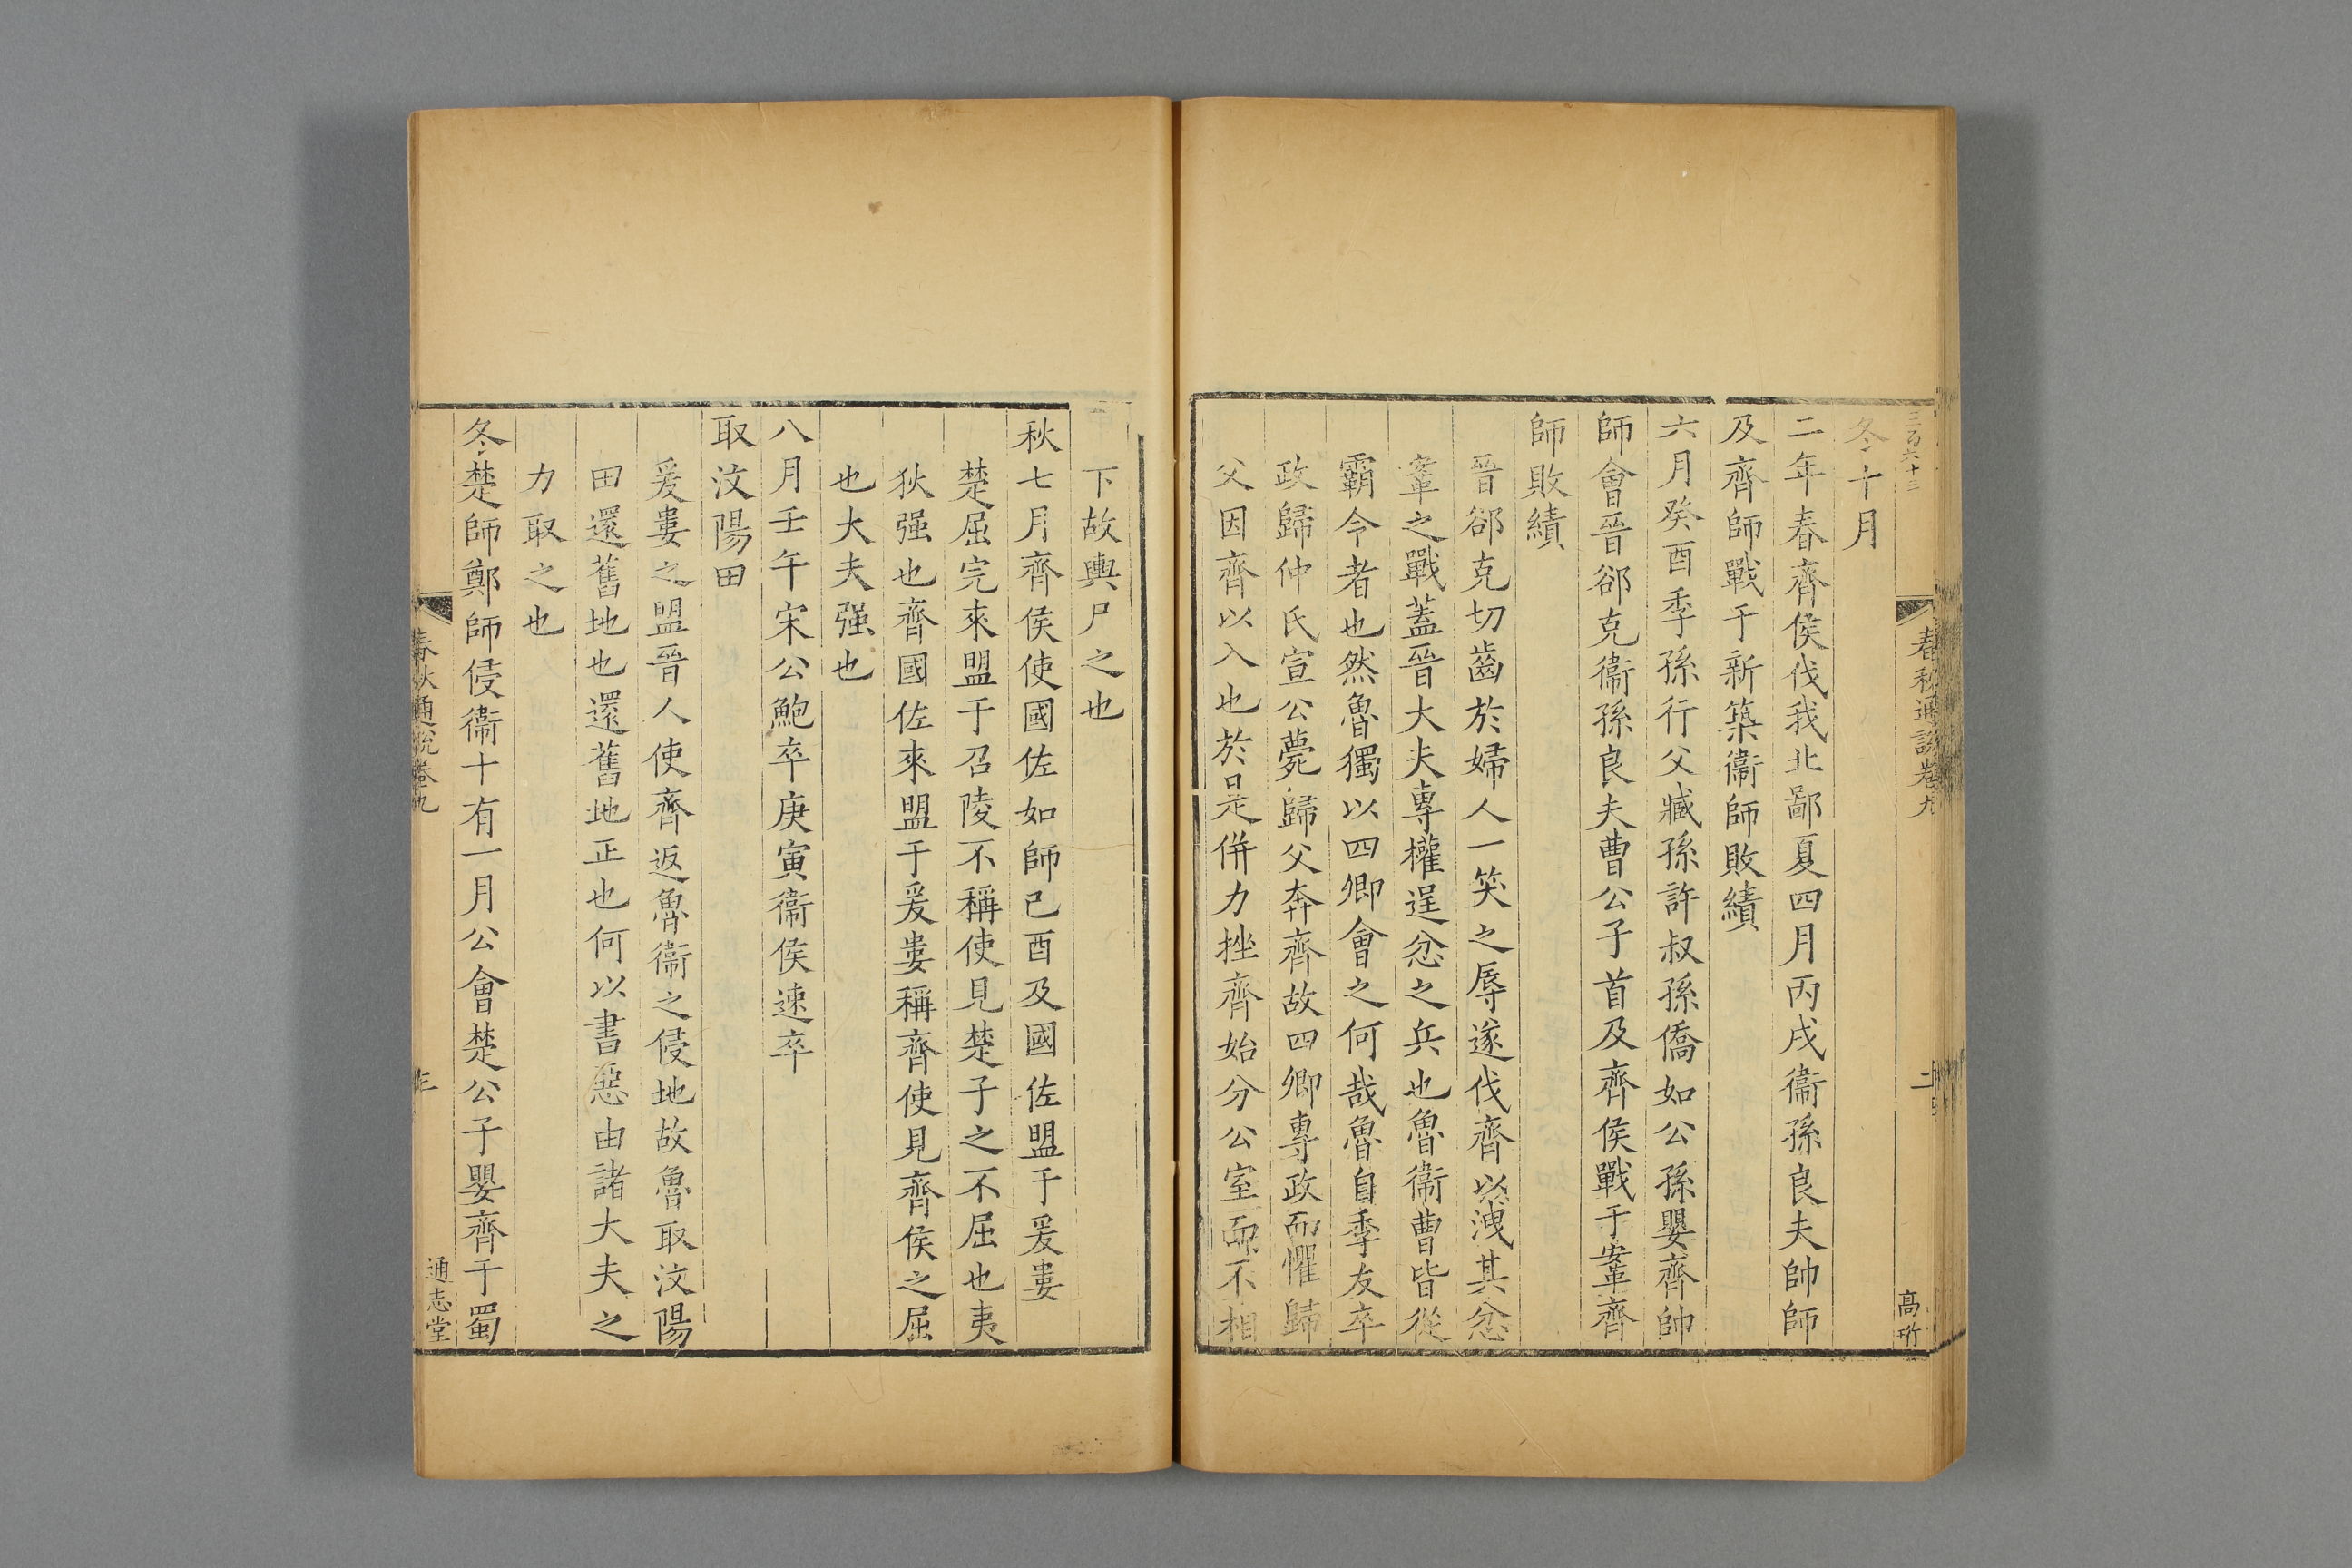 三百六十三
春秋通說卷九
二
高珩
冬十月
二年春齊侯伐我北鄙夏四月丙戌衞孫良夫帥師
及齊師戰于新築衞師敗績
六月癸酉季孫行父臧孫許叔孫僑如公孫嬰齊帥
師會晉郤克衞孫良夫曹公子首及齊侯戰于鞌齊
師敗績
晉郤克切齒於婦人一笑之辱遂伐齊以洩其忿
鞌之戰蓋晉大夫專權逞忿之兵也魯衞曹皆從
霸令者也然魯獨以四卿會之何哉魯自季友卒
政歸仲氏宣公薨歸父奔齊故四卿專政而懼歸
父因齊以入也於是併力挫齊始分公室而不相
下故輿尸之也
秋七月齊侯使國佐如師己酉及國佐盟于爰婁
楚屈完來盟于召陵不稱使見楚子之不屈也夷
狄强也齊國佐來盟于爰婁稱齊使見齊侯之屈
也大夫强也
八月壬午宋公鮑卒庚寅衞侯速卒
取汶陽田
爰婁之盟晉人使齊返魯衞之侵地故魯取汶陽
田還舊地也還舊地正也何以書惡由諸大夫之
力取之也
冬楚師鄭師侵衞十有一月公會楚公子嬰齊于蜀
春秋通說卷九
通志堂